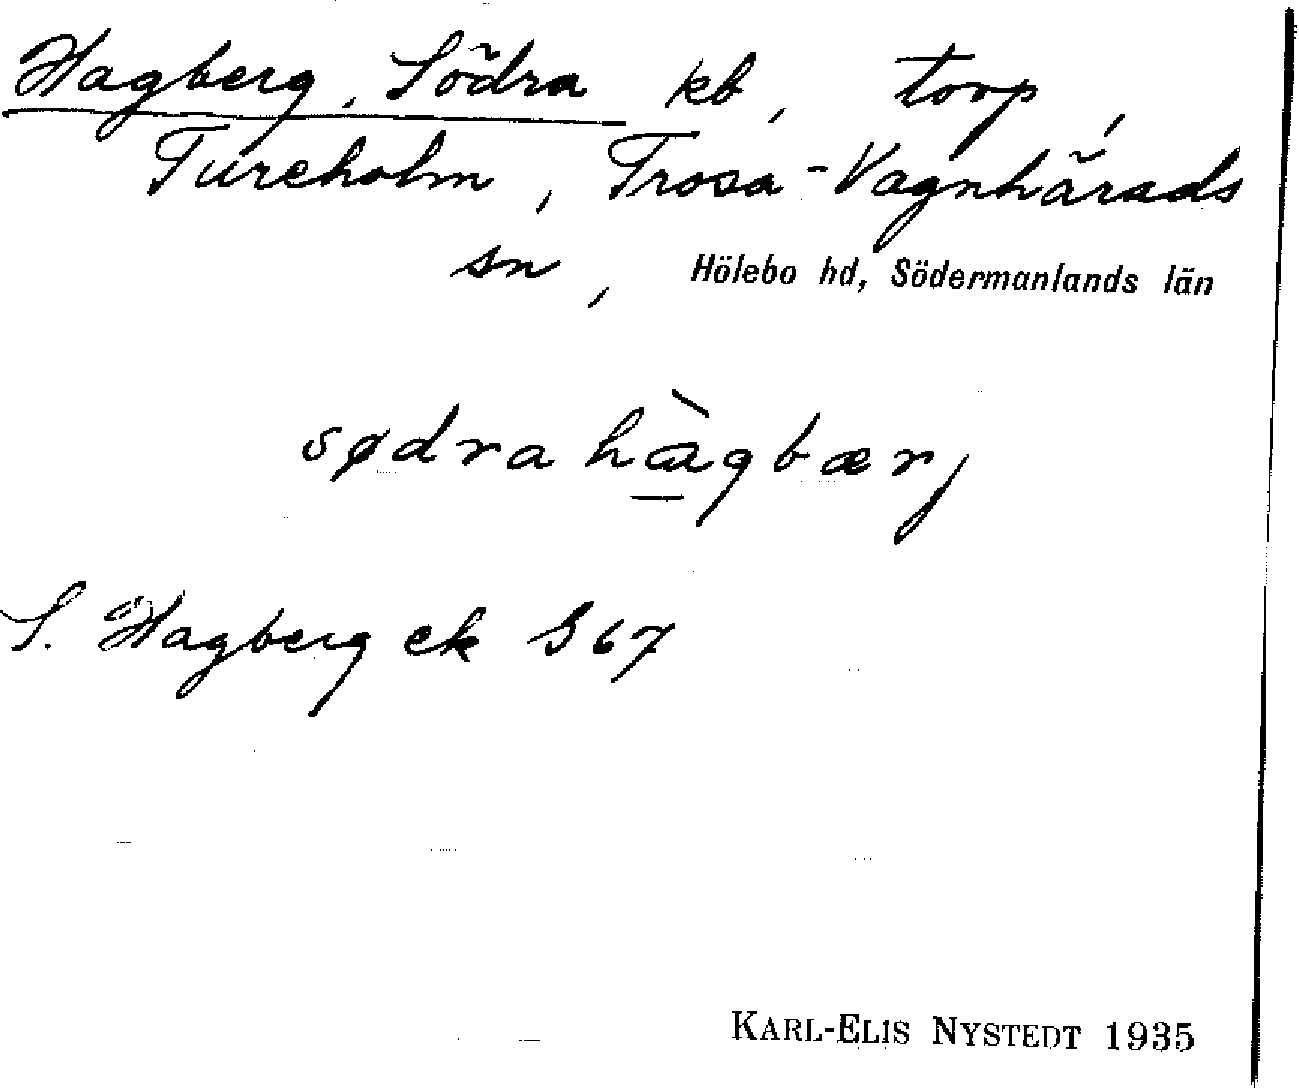 Hagberg, Södra kb, torp,
Tureholm, Trosa-Vagnhärads
sn, Hölebo hd, Södermanlands län
sødra hà̱gbærj
S. Hagberg ek S 67
KARL-ELIS NYSTEDT 1935